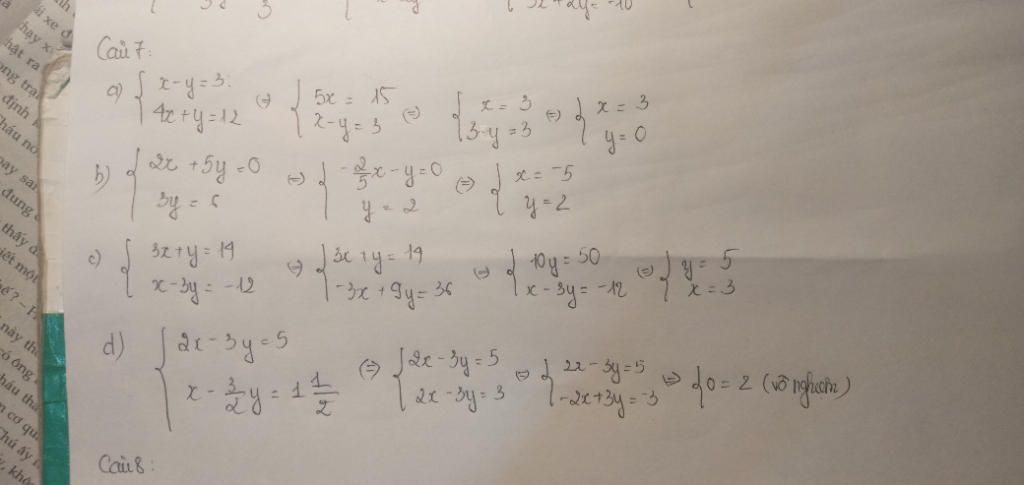 3x + 2y = -10
Câu 7:
a) { x - y = 3 ; 4x + y = 12 (=) { 5x = 15 ; x - y = 3 (=) { x = 3 ; 3 - y = 3 (=) { x = 3 ; y = 0
b) { 2x + 5y = 0 ; 3y = 6 (=) { -2/5x - y = 0 ; y = 2 (=) { x = -5 ; y = 2
c) { 3x + y = 14 ; x - 3y = -12 (=) { 3x + y = 14 ; -3x + 9y = 36 (=) { 10y = 50 ; x - 3y = -12 (=) { y = 5 ; x = 3
d) { 2x - 3y = 5 ; x - 3/2y = 1 1/2 (=) { 2x - 3y = 5 ; 2x - 3y = 3 (=) { 2x - 3y = 5 ; -2x + 3y = -3 => { 0 = 2 (vô nghiệm)
Câu 8: